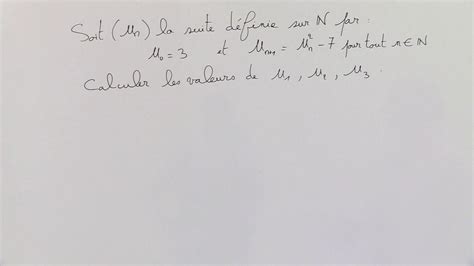 Soit (un) la suite définie sur N par :
u0 = 3 et un+1 = un² - 7 pour tout n ∈ N
Calculer les valeurs de u1, u2, u3.